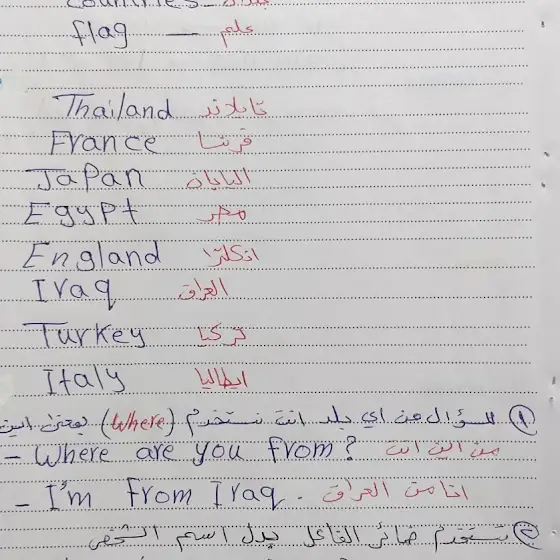 countries - بلدان
flag — علم
Thailand تايلاند
France فرنسا
Japan اليابان
Egypt مصر
England انكلترا
Iraq العراق
Turkey تركيا
Italy ايطاليا
① للسؤال عن اي بلد انت نستخدم (Where) بمعنى اين
- Where are you from? من اين انت
- I'm from Iraq. انا من العراق
② نستخدم ضمائر الفاعل بدل اسم الشخص